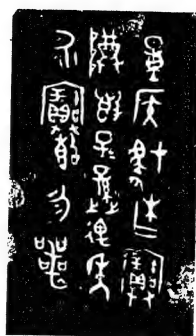 量侯作寶
尊簋子子孫萬年
永寶簋勿喪